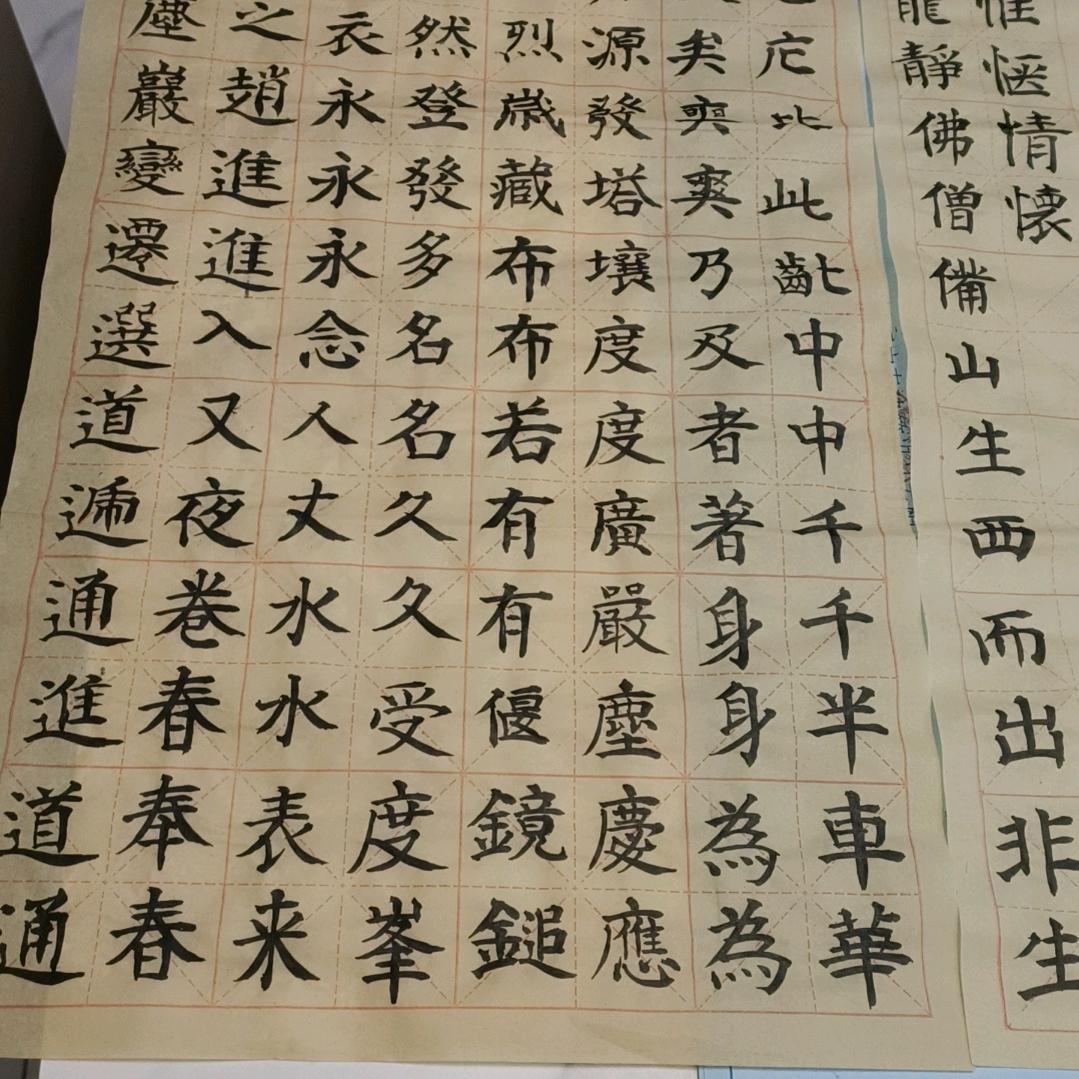 惟愜情懷
龍靜佛僧備山生西而出非生
比此齔中中千千半車華
矣爽爽乃及者著身身為為
源發塔壤度度廣嚴塵慶應
烈歲藏布布若有有偃鏡鎚
然登發多名名久久受度峯
衣永永永念人丈水水表来
之趙進進入又夜卷春奉春
塵巖變遷選道遞通進道通